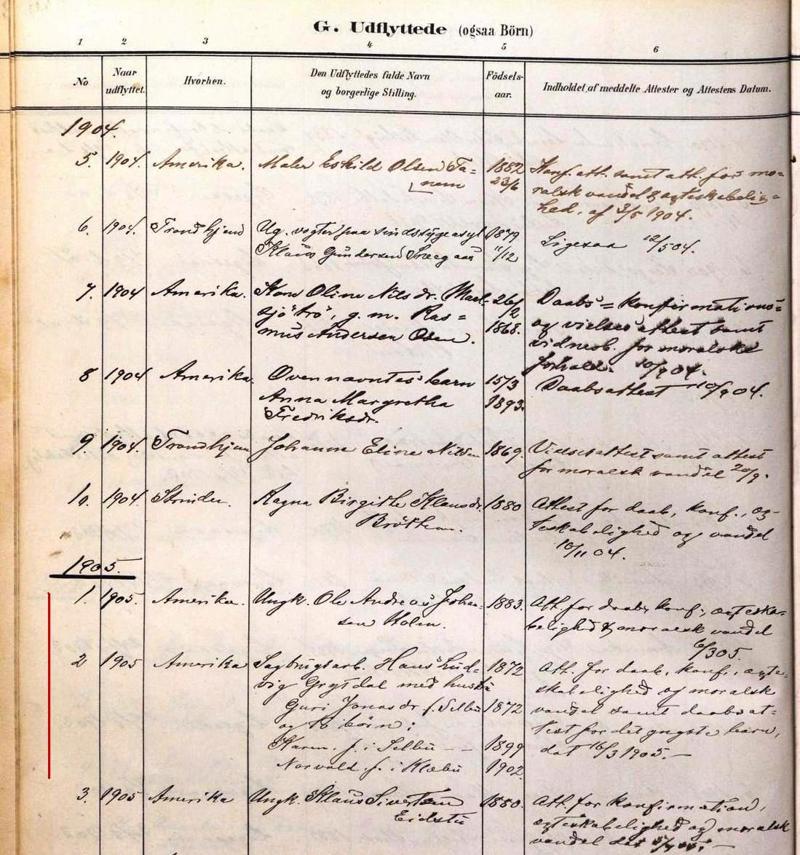 G. Udflyttede (ogsaa Börn)
1 2 3 4 5 6
No Naar udflyttet. Hvorhen. Den Udflyttedes fulde Navn og borgerlige Stilling. Födsels-aar. Indholdet af meddelte Attester og Attestens Datum.
1904.
5. 1904. Amerika. Maler Eskild Olsen Ta= 1882 Konf. att. samt att. for mo=
nem 23/6 ralsk vandel & ægteskabelig=
hed, af 1904.
6. 1904. Trondhjem Ug. vogter paa sindssygeasyl 1879
Klaus Gundersen 11/12 Ligesaa 12/5 04.
7. 1904 Amerika. Oline Nilsdr. 26/ Daabs= konfirmations=
sjøbrö, g. m. Ras= 12 og vielses attest samt
mus Andersen Osen. 1868. vidnesb. for moralske
forhold. 10/9 04.
8 1904 Amerika. Ovennævntes barn 15/3 Daabsattest 10/9 04.
Anna Margretha 1893.
Fredriksdr.
9. 1904 Trondhjem Johanna Eline Nilsen 1869. Vielsesattest samt attest
for moralsk vandel 20/9.
10. 1904 Strinden. Ragna Birgithe Klausdr. 1880 Attest for daab, konf., æg=
Bröttem. teskabelighed og vandel
10/11 04.
1905.
1. 1905. Amerika. Ungk. Ole Andreas Johan= 1883. Att. for daab, konf., ægteska=
sen Holen. belighed & moralsk vandel
6/3 05
2 1905 Amerika Sagbrugsarb. Hans Lud= 1872 Att. for daab, konf., ægte=
vig Grytdal med hustru skabelighed og moralsk
Guri Jonasdr f. Selbu 1872 vandel samt daabsat=
og to börn: test for det yngste barn,
Karen f. i Selbu -- 1899 dat 16/3 1905.-
Norvald f. i Klæbu 1902.
3. 1905 Amerika Ungk. Klaus Sivertsen 1880. Att. for konfirmation,
Eidstu ægteskabelighed og moralsk
vandel